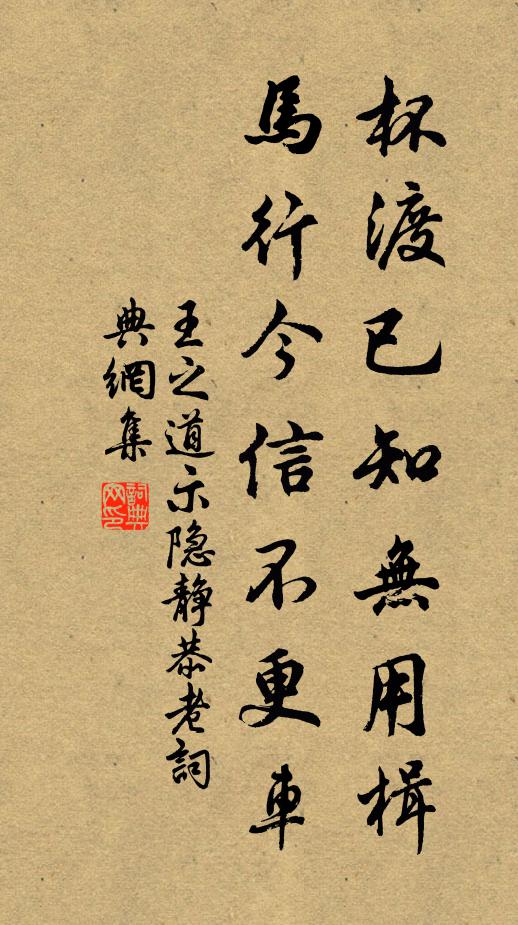 杯渡已知無用楫
馬行今信不更車
王之道示隐静恭老詞
典網集
詞典網印